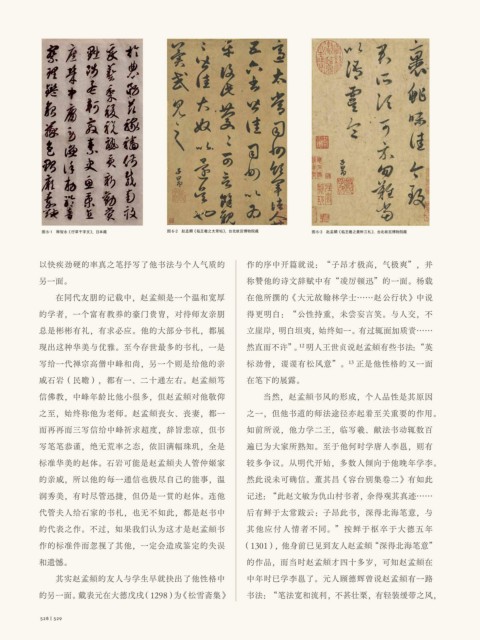 於農務茲稼穡俶載南畝
我藝黍稷稅熟貢新勸賞
黜陟孟軻敦素史魚秉直
庶幾中庸勞謙謹敕聆音
察理鑒貌辨色貽厥嘉猷
裹鮓味佳今致
君所須可示勿難當
以語虞令
子昂
图6-1 释智永《行草千字文》，日本藏
图6-2 赵孟頫《临王羲之太常帖》，台北故宫博物院藏
图6-3 赵孟頫《临王羲之裹鲊三札》，台北故宫博物院藏
以快疾劲硬的率真之笔抒写了他书法与个人气质的
另一面。
在同代友朋的记载中，赵孟頫是一个温和宽厚
的学者，一个富有教养的豪门贵胄，对待师友亲朋
总是彬彬有礼，有求必应。他的大部分书札，都展
现出这种华美与优雅。至今存世最多的书札，一是
写给一代禅宗高僧中峰和尚，另一个则是给他的亲
戚石岩（民瞻），都有一、二十通左右。赵孟頫笃
信佛教，中峰年龄比他小很多，但赵孟頫对他敬仰
之至，始终称他为老师。赵孟頫丧女、丧妻，都一
而再再而三写信给中峰祈求超度，辞旨悲凉，但书
写笔笔恭谨，绝无荒率之态，依旧满幅珠玑，全是
标准华美的赵体。石岩可能是赵孟頫夫人管仲姬家
的亲戚，所以他的每一通信也极尽自己的能事，温
润秀美，有时尽管迅捷，但仍是一贯的赵体。连他
代管夫人给石家的书札，也无不如此，都是赵书中
的代表之作。不过，如果我们认为这才是赵孟頫书
作的标准件而忽视了其他，一定会造成鉴定的失误
和遗憾。
其实赵孟頫的友人与学生早就抉出了他性格中
的另一面。戴表元在大德戊戌（1298）为《松雪斋集》
作的序中开篇就说：“子昂才极高，气极爽”，并
称赞他的诗文辞赋中有“凌厉顿迅”的一面。杨载
在他所撰的《大元故翰林学士……赵公行状》中说
得更明白：“公性持重，未尝妄言笑。与人交，不
立崖岸，明白坦夷，始终如一。有过辄面加质责……
然直而不许”。¹²明人王世贞说赵孟頫有些书法：“英
标劲骨，谡谡有松风意”。¹³正是他性格的又一面
在笔下的展露。
当然，赵孟頫书风的形成，个人品性是其原因
之一，但他书道的师法途径亦起着至关重要的作用。
如前所说，他力学二王，临写羲、献法书动辄数百
遍已为大家所熟知。至于他何时学唐人李邕，则有
较多争议。从明代开始，多数人倾向于他晚年学李。
然此说未可确信。董其昌《容台别集卷二》有如此
记述：“此赵文敏为仇山村书者，余得观其真迹……
后有鲜于太常跋云：子昂此书，深得北海笔意，与
其他应付人情者不同。”按鲜于枢卒于大德五年
（1301），他身前已见到友人赵孟頫“深得北海笔意”
的作品，而当时赵孟頫才四十多岁，可知赵孟頫在
中年时已学李邕了。元人顾德辉曾说赵孟頫有一路
书法：“笔法宽和流利，不甚壮栗，有轻裘缓带之风，
328 | 329